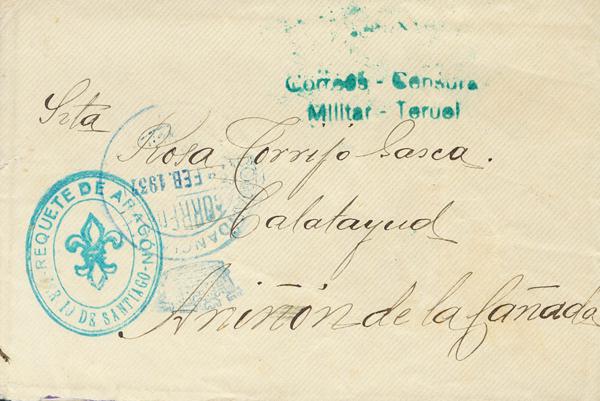 Correos - Censura
Militar - Teruel
Srta
Rosa Torrijo Gasca.
Calatayud
Aniñón de la Cañada
REQUETE DE ARAGON
DE SANTIAGO-N
FEB. 1937